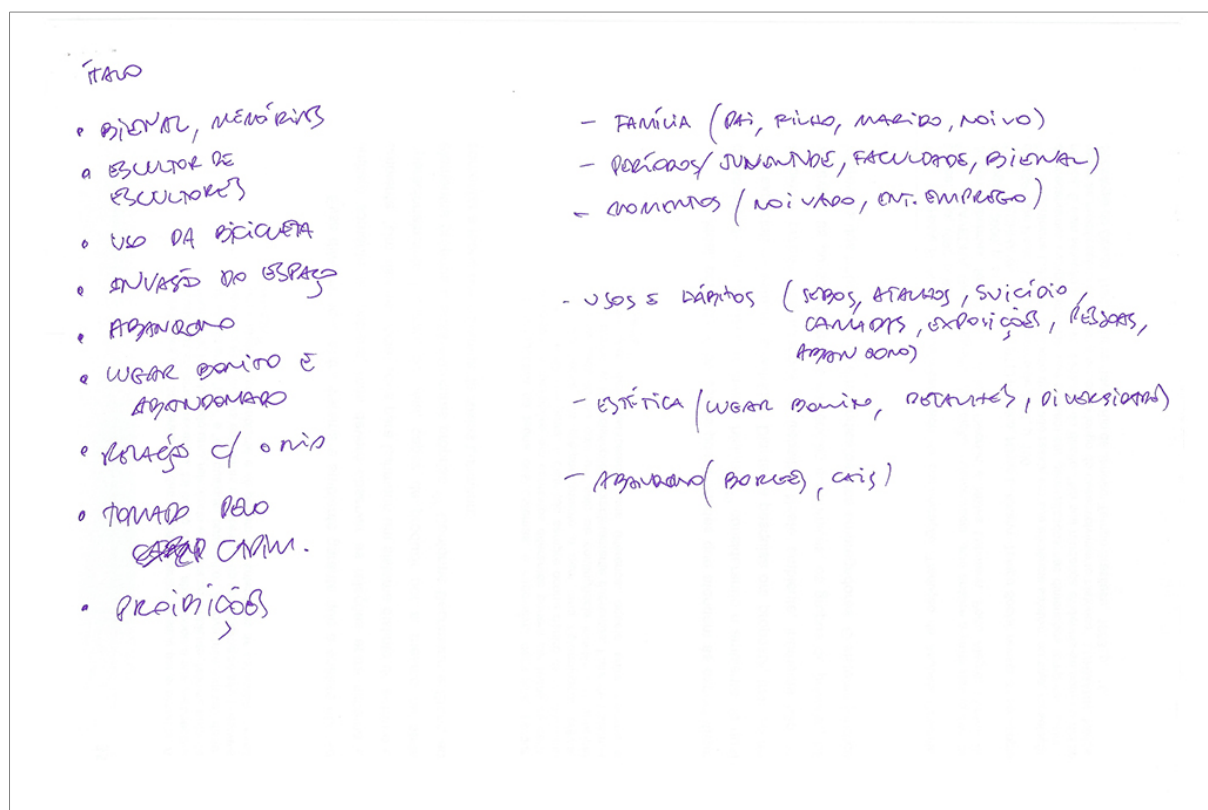 ÍTALO
• BIENAL, MEMÓRIAS
• ESCULTOR DE
ESCULTORES
• USO DA BICICLETA
• INVASÃO DO ESPAÇO
• ABANDONO
• LUGAR BONITO E
ABANDONADO
• RELAÇÃO C/ O RIO
• TOMADO PELO
CAPIM.
• PROIBIÇÕES
- FAMÍLIA (PAI, FILHO, MARIDO, NOIVO)
- PERÍODOS / JUVENTUDE, FACULDADE, BIENAL)
- MOMENTOS (NOIVADO, ENT. EMPREGO)
- USOS E HÁBITOS (SEBOS, ATALHOS, SUICÍDIO,
EXPOSIÇÕES, PESSOAS,
ABANDONO)
- ESTÉTICA (LUGAR BONITO, DETALHES, DIVERSIDADE)
- ABANDONO (BORGES, CAIS)